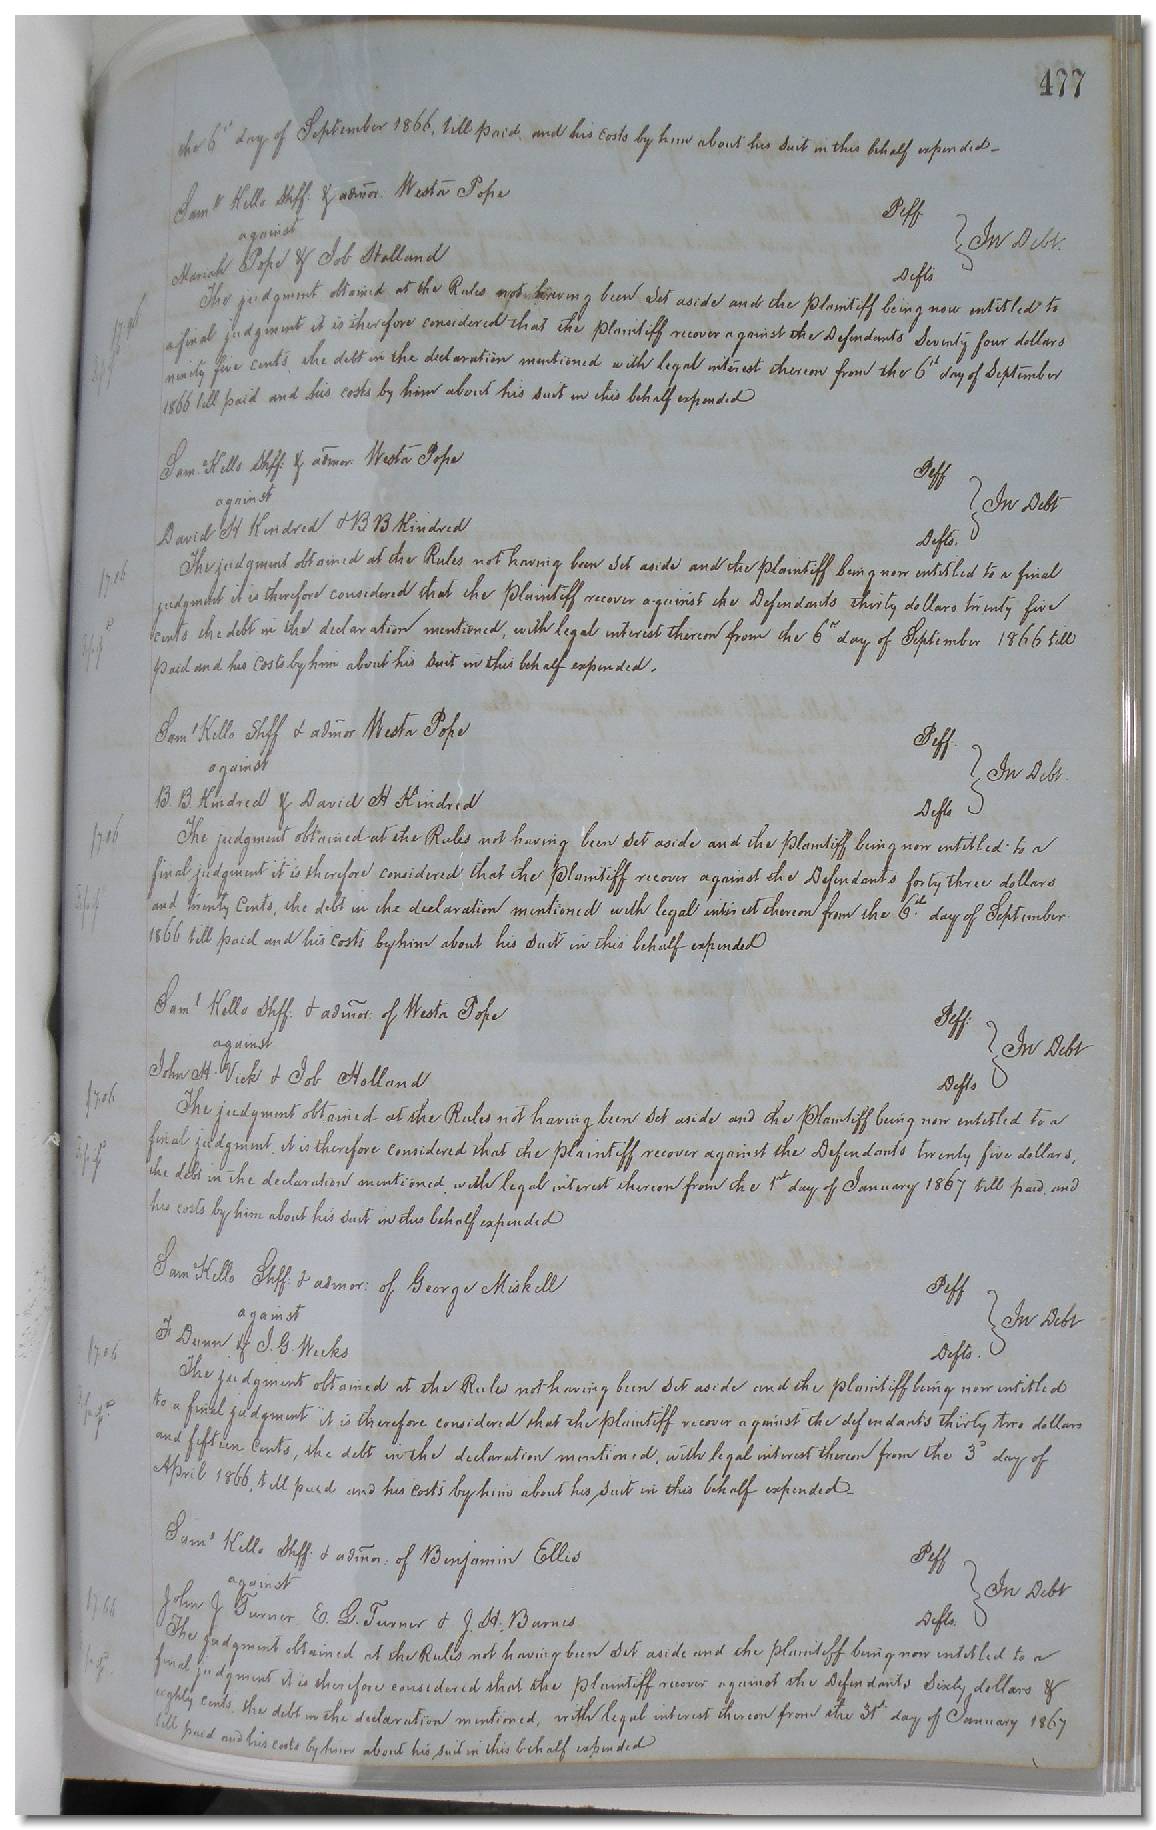 477
the 6th day of September 1866, till paid, and his costs by him about his suit in this behalf expended -
Saml Kello Shff: & admor. Westn Pope Plff
against } In Debt.
Mariah Pope & Job Holland Defts
The judgment obtained at the Rules not having been set aside and the plaintiff being now entitled to
a final judgment it is therefore considered that the plaintiff recover against the Defendants Seventy four dollars
ninety five cents, the debt in the declaration mentioned with legal interest thereon from the 6th day of September
1866 till paid and his costs by him about his suit in this behalf expended
Saml Kello Shff: & admor: Westn Pope Plff
against } In Debt
David H Kindred & B B Kindred Defts.
The judgment obtained at the Rules not having been set aside and the plaintiff being now entitled to a final
judgment it is therefore considered that the plaintiff recover against the Defendants thirty dollars twenty five
cents the debt in the declaration mentioned, with legal interest thereon from the 6th day of September 1866 till
paid and his costs by him about his suit in this behalf expended.
Saml Kello Shff & admor Westn Pope Plff.
against } In Debt.
B. B. Kindred & David H Kindred Defts
The judgment obtained at the Rules not having been set aside and the plaintiff being now entitled to a
final judgment it is therefore considered that the plaintiff recover against the Defendants forty three dollars
and twenty cents, the debt in the declaration mentioned with legal interest thereon from the 6th day of September
1866 till paid and his costs by him about his suit in this behalf expended
Saml Kello Shff: & admor: of Westn Pope Plff:
against } In Debt
John H. Vick & Job Holland Defts
The judgment obtained at the Rules not having been set aside and the plaintiff being now entitled to a
final judgment, it is therefore considered that the plaintiff recover against the Defendants twenty five dollars,
the debt in the declaration mentioned, with legal interest thereon from the 1st day of January 1867 till paid, and
his costs by him about his suit in this behalf expended
Saml Kello Shff: & admor: of George Miskell Plff
against } In Debt
F Dunn & J. G. Weeks Defts.
The judgment obtained at the Rules not having been set aside and the plaintiff being now entitled
to a final judgment it is therefore considered that the plaintiff recover against the defendants thirty two dollars
and fifteen cents, the debt in the declaration mentioned, with legal interest thereon from the 3d day of
April 1866, till paid and his costs by him about his suit in this behalf expended -
Saml Kello Shff: & admor: of Benjamin Ellis Plff
against } In Debt
John J Turner, E. G. Turner & J. H. Barnes Defts.
The judgment obtained at the Rules not having been set aside and the plaintiff being now entitled to a
final judgment it is therefore considered that the plaintiff recover against the Defendants Sixty dollars &
eighty cents, the debt in the declaration mentioned, with legal interest thereon from the 3d day of January 1867
till paid and his costs by him about his suit in this behalf expended